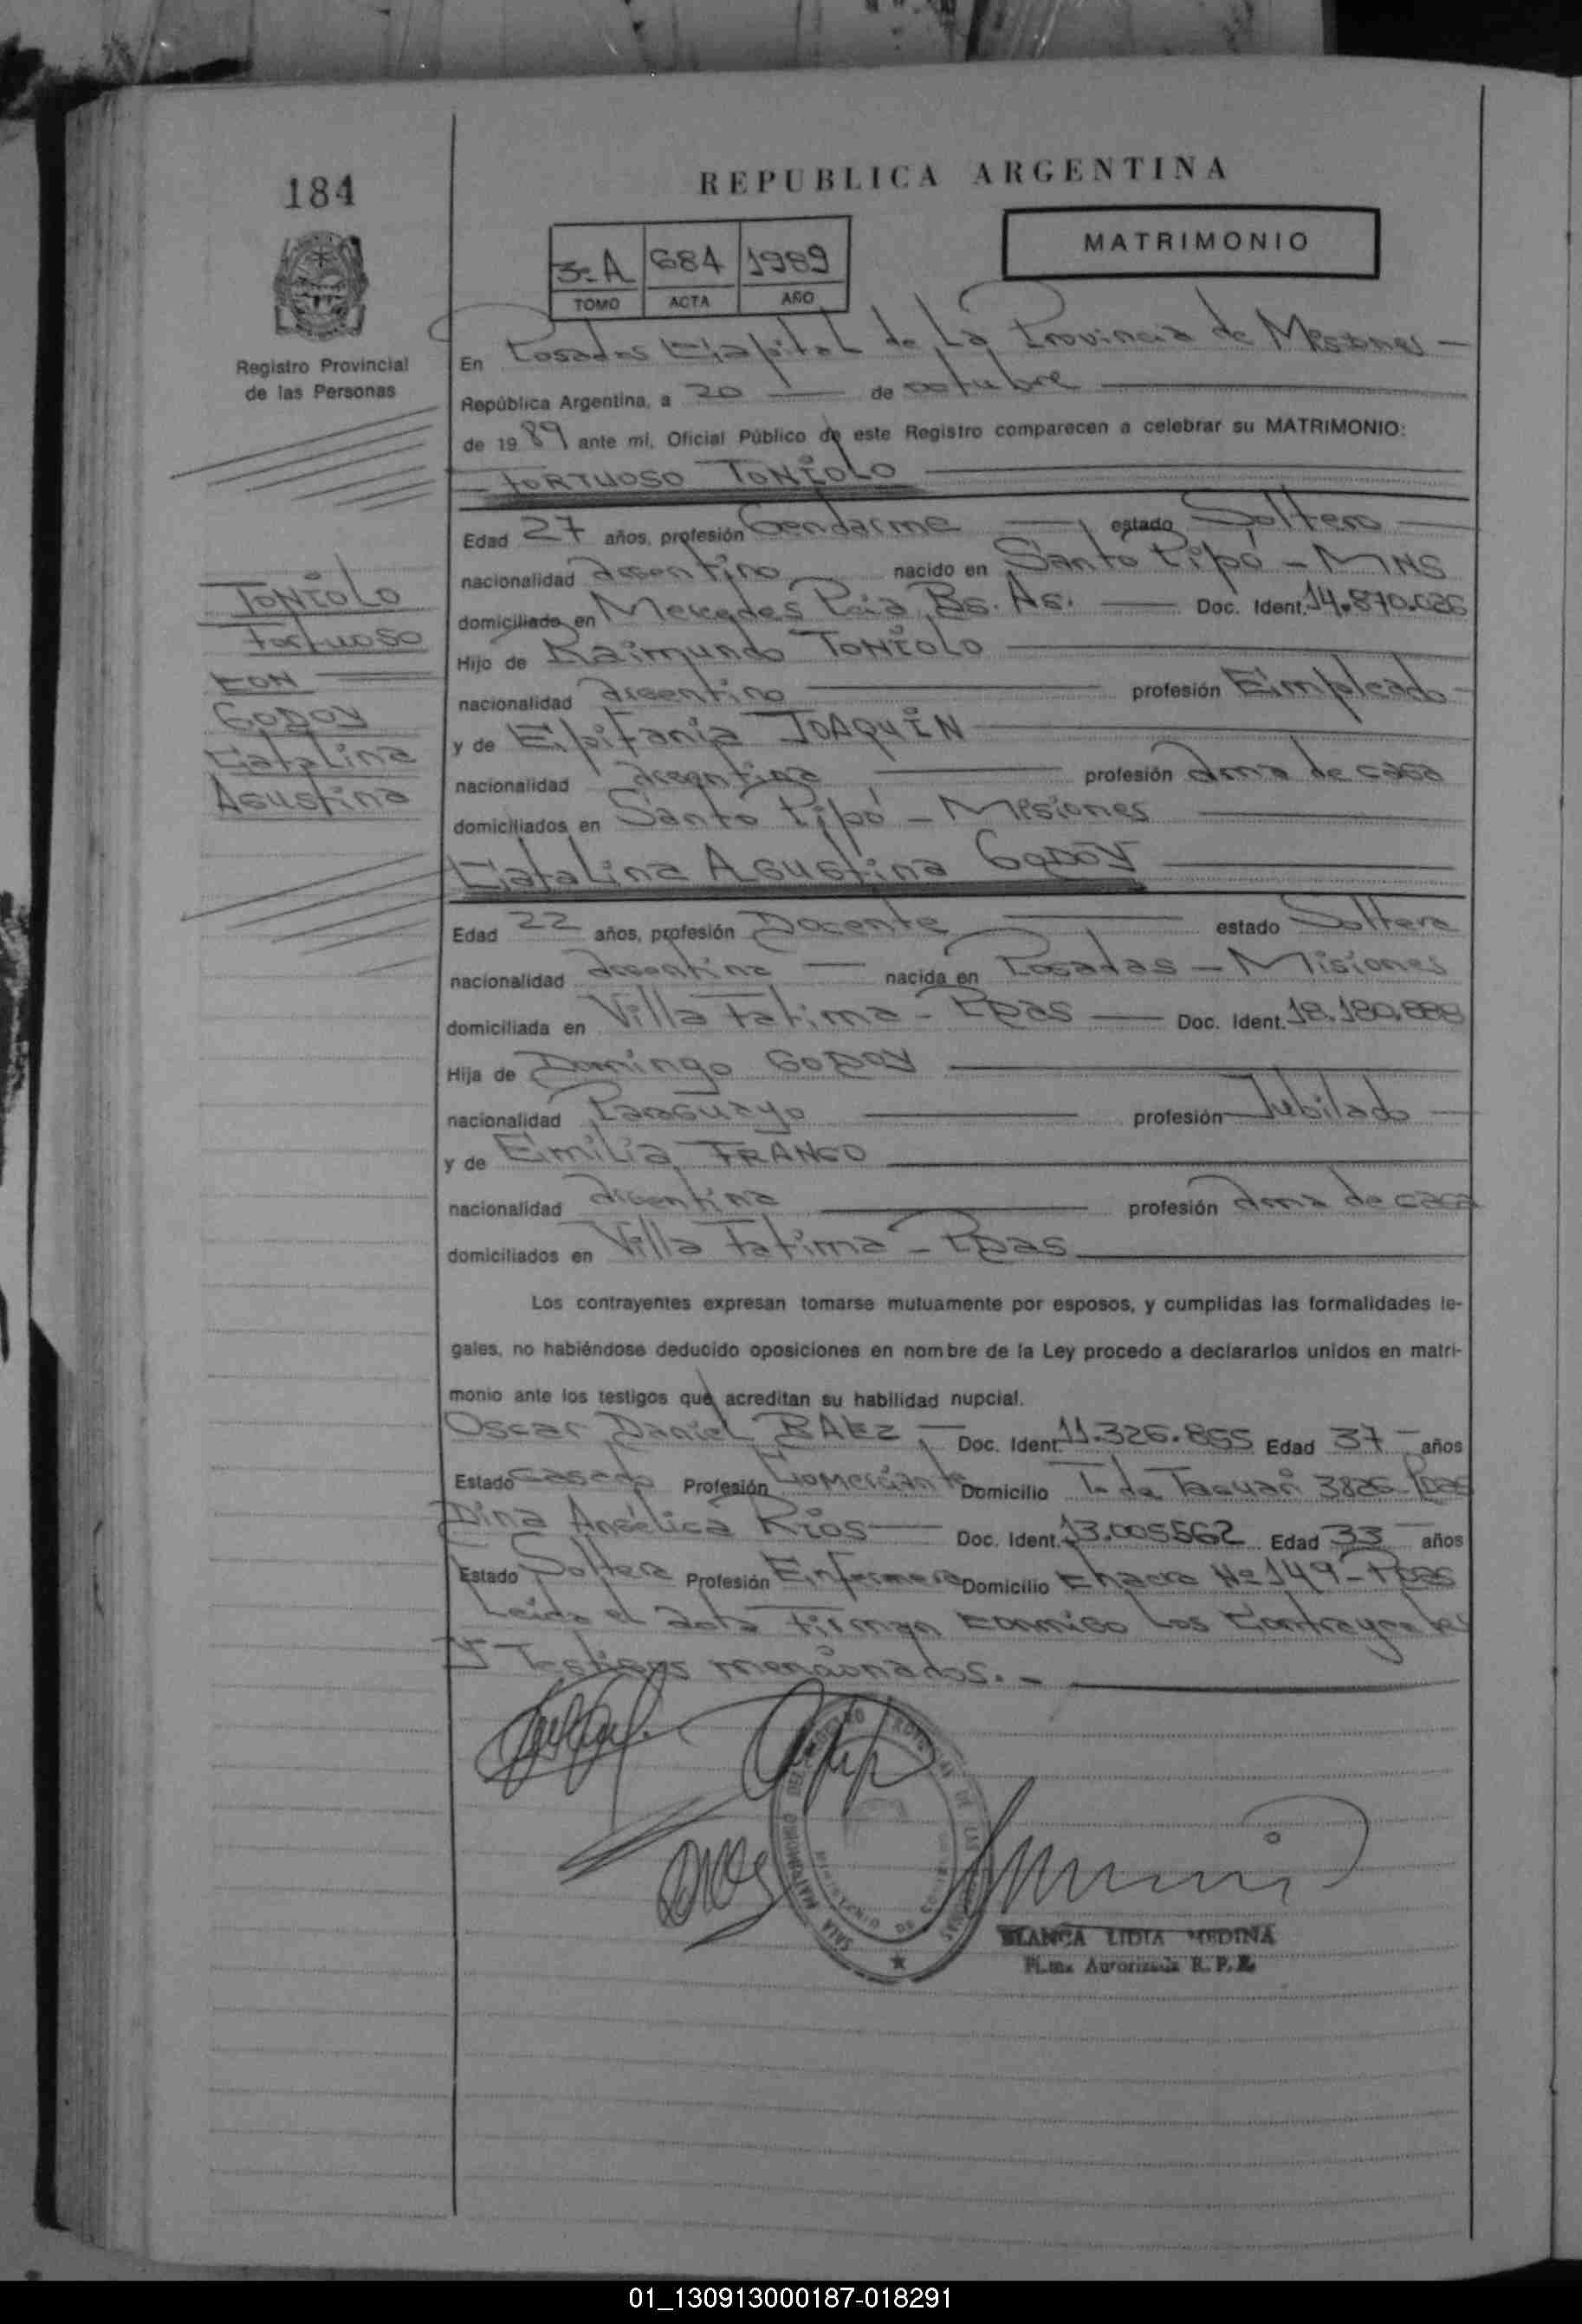 184
REPUBLICA ARGENTINA
MATRIMONIO
3º A 684 1989
TOMO ACTA AÑO
Registro Provincial
de las Personas
En Posadas Capital de La Provincia de Misiones
República Argentina, a 20 de octubre
de 1989 ante mí, Oficial Público de este Registro comparecen a celebrar su MATRIMONIO:
FORTUOSO TONIOLO
Edad 27 años, profesión Gendarme estado Soltero
nacionalidad argentino nacido en Santo Pipó - MNS
domiciliado en Mercedes Pcia Bs. As. Doc. Ident. 14.870.026
Hijo de Raimundo TONIOLO
nacionalidad argentino profesión Empleado
y de Epifania JOAQUIN
nacionalidad argentina profesión ama de casa
domiciliados en Santo Pipó - Misiones
Catalina Agustina GODOY
TONIOLO
Fortuoso
CON
GODOY
Catalina
Agustina
Edad 22 años, profesión Docente estado Soltera
nacionalidad argentina nacida en Posadas - Misiones
domiciliada en Villa Fatima - Pdas Doc. Ident. 18.180.888
Hija de Domingo GODOY
nacionalidad Paraguayo profesión Jubilado
y de Emilia FRANCO
nacionalidad argentina profesión ama de casa
domiciliados en Villa Fatima - Pdas
Los contrayentes expresan tomarse mutuamente por esposos, y cumplidas las formalidades le-
gales, no habiéndose deducido oposiciones en nombre de la Ley procedo a declararlos unidos en matri-
monio ante los testigos que acreditan su habilidad nupcial.
Oscar Daniel BAEZ Doc. Ident. 11.326.855 Edad 37 años
Estado casado Profesión Comerciante Domicilio Tacuarí 3826 Pdas
Dina Angélica Ríos Doc. Ident. 13.005562 Edad 33 años
Estado Soltera Profesión Enfermera Domicilio Chacra Nº 149 - Pdas
Leída el acta Firman conmigo Los Contrayentes
y Testigos mencionados.-
BLANCA LIDIA MEDINA
Firma Autorizada R. P. P.
01_130913000187-018291